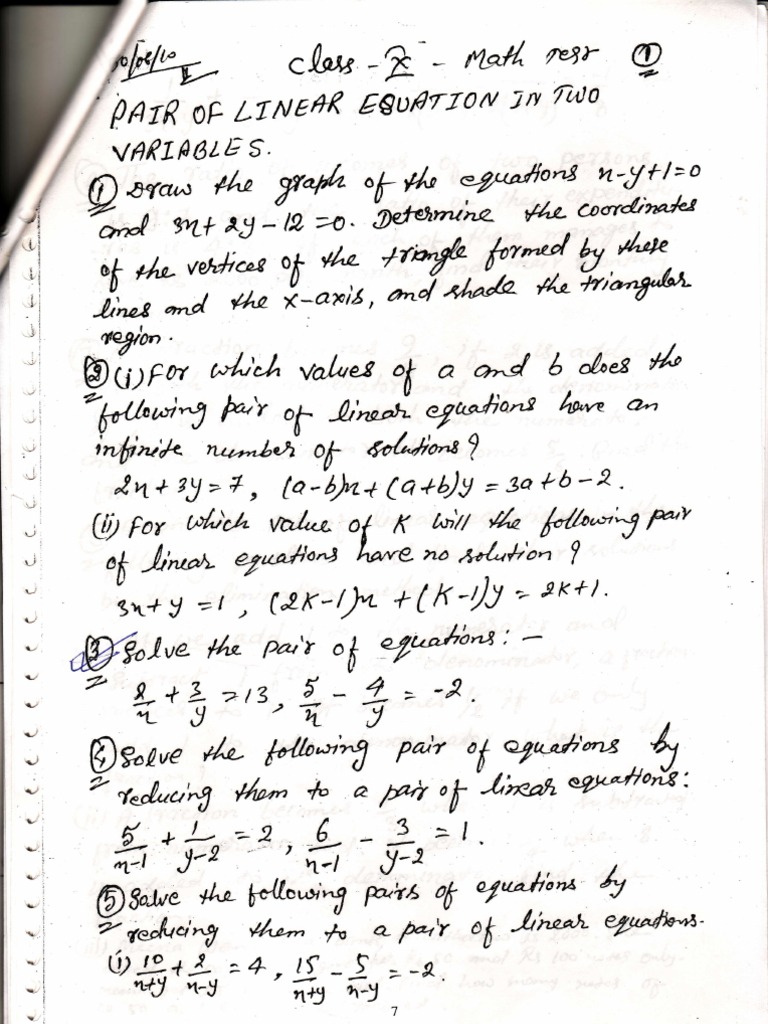 10/08/10 Class - X - Math test ①
PAIR OF LINEAR EQUATION IN TWO
VARIABLES.
① Draw the graph of the equations x-y+1=0
and 3x+2y-12=0. Determine the coordinates
of the vertices of the triangle formed by these
lines and the x-axis, and shade the triangular
region.
② (i) For which values of a and b does the
following pair of linear equations have an
infinite number of solutions?
2x+3y=7, (a-b)x+(a+b)y=3a+b-2.
(ii) For which value of K will the following pair
of linear equations have no solution?
3x+y=1, (2K-1)x+(K-1)y=2K+1.
③ Solve the pair of equations: -
2/x + 3/y = 13, 5/x - 4/y = -2.
④ Solve the following pair of equations by
reducing them to a pair of linear equations:
5/x-1 + 1/y-2 = 2, 6/x-1 - 3/y-2 = 1.
⑤ Solve the following pairs of equations by
reducing them to a pair of linear equations.
(i) 10/x+y + 2/x-y = 4, 15/x+y - 5/x-y = -2.
7